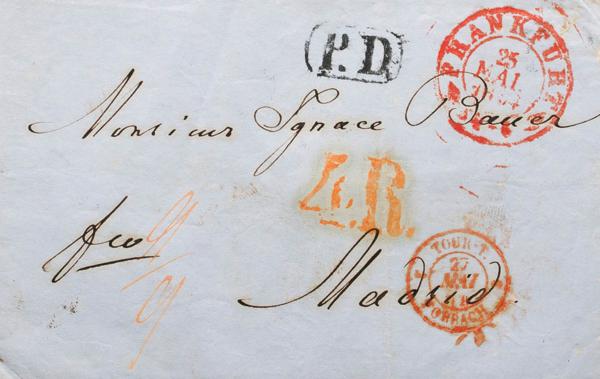 P.D.
FRANKFURT
25
MAI
Monsieur Ignace Bauer
4.R.
fco
9/9
Madrid.
TOUR-T.
27
MAI
FORBACH